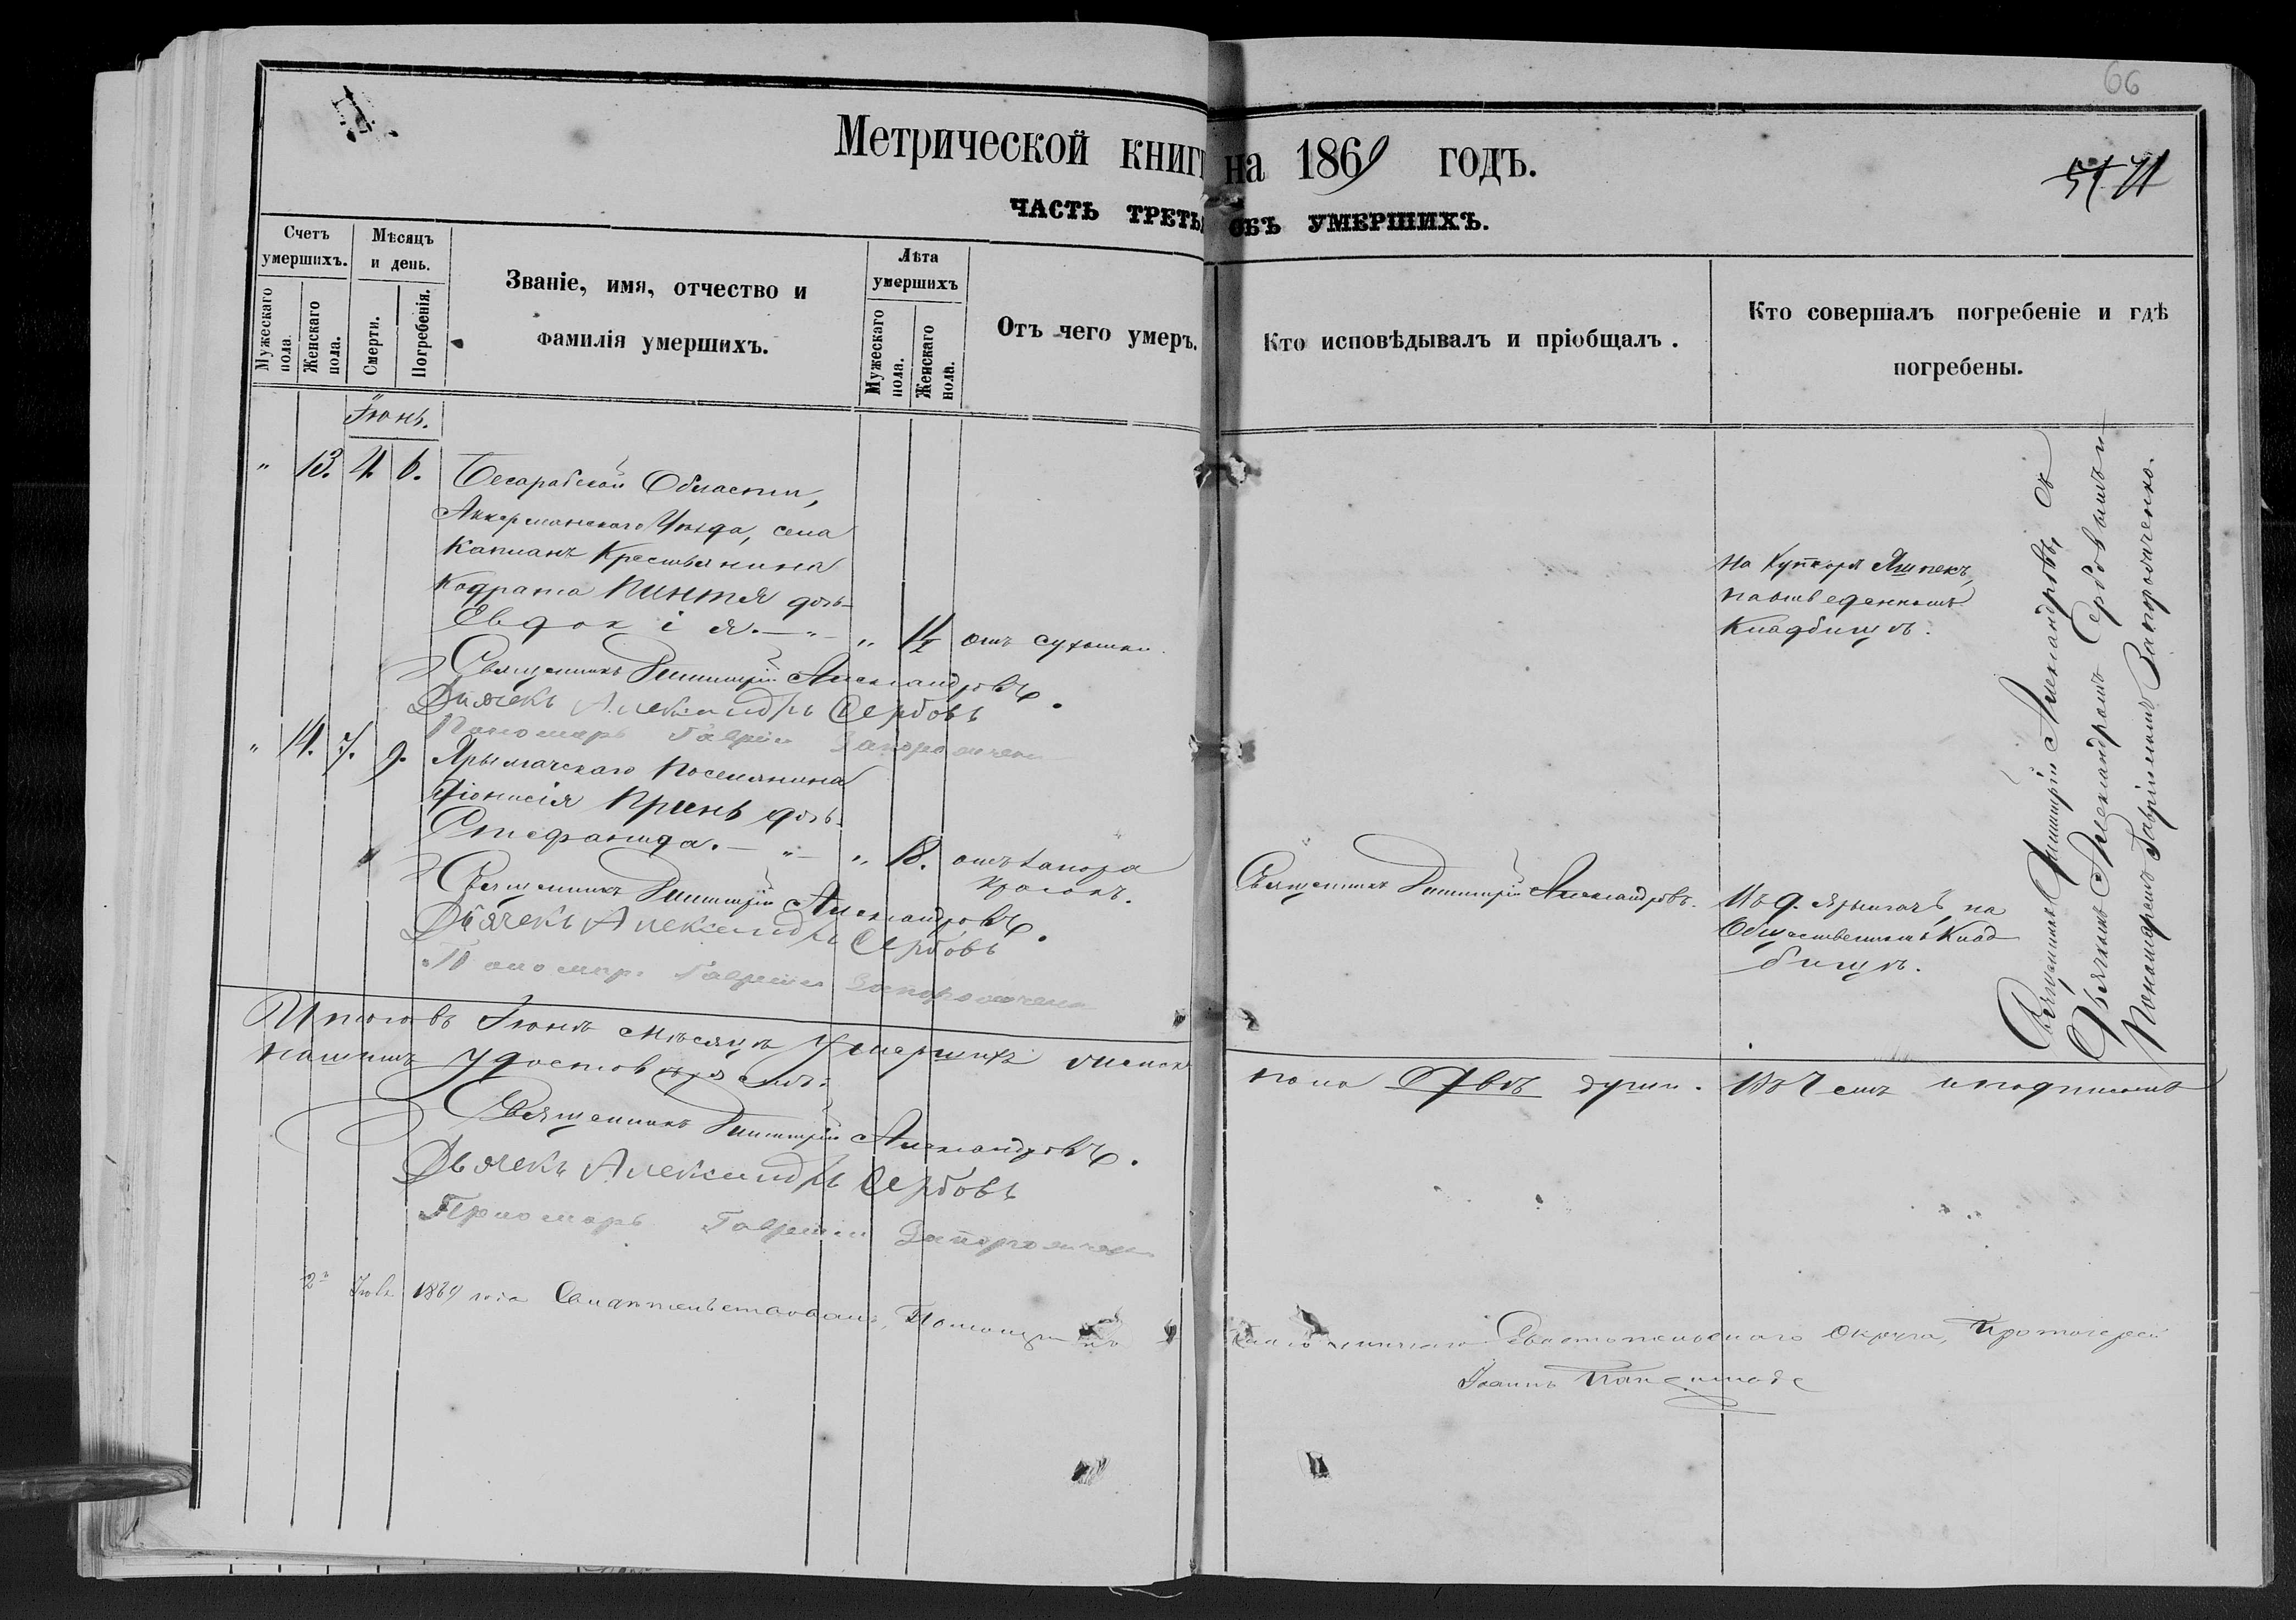 66
Метрической книги на 1869 годъ.
51 71
ЧАСТЬ ТРЕТЬЯ ОБЪ УМЕРШИХЪ.
Счетъ умершихъ.
Мужескаго пола.
Женскаго пола.
Мѣсяцъ и день.
Смерти.
Погребенія.
Званіе, имя, отчество и
фамилія умершихъ.
Лѣта умершихъ
Мужескаго пола.
Женскаго пола.
Отъ чего умеръ.
Кто исповѣдывалъ и пріобщалъ.
Кто совершалъ погребеніе и гдѣ
погребены.
Іюнь.
" 13. 4. 6. Бесарабской Области,
Аккерманскаго Уѣзда, села
Каплань Крестьянина
Кодрата Пинтя дочь
Евдокія. — " — " отъ сухотки.
на Хуторѣ
наотведенномъ
Кладбищѣ.
Священникъ Димитрій Александровъ.
Дьячекъ Александръ Сербовъ
Пономарь Гавріилъ Запорожченко
" 14. 7. 9. Ярылгачскаго Поселянина
Діонисія Принь дочь
Стефанида. — " — " 18. отъ запора
кросокъ.
Священникъ Димитрій Александровъ.
Въ д. Ярылгачѣ, на
Общественномъ Клад-
бищѣ.
Священникъ Димитрій Александровъ.
Дьячекъ Александръ Сербовъ
Пономарь Гавріилъ Запорожченко
Священникъ Димитрій Александровъ, съ
Дьячкомъ Александромъ Сербовымъ и
Пономаремъ Гавріиломъ Запорожченко.
Итого въ Іюнѣ мѣсяцѣ умершихъ женска
пола двѣ души. Въ чемъ и подписомъ
нашимъ удостовѣряемъ:
Священникъ Димитрій Александровъ.
Дьячекъ Александръ Сербовъ
Пономарь Гавріилъ Запорожченко
2го Іюля 1869 года Свидѣтельствовалъ, Помощникъ Благочиннаго Евпаторійскаго Округа, Протоіерей
Іоаннъ